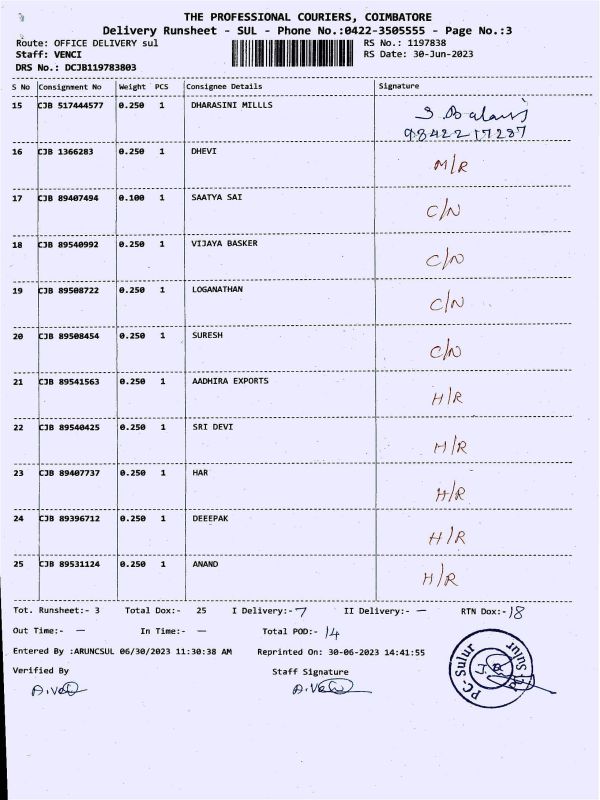 THE PROFESSIONAL COURIERS, COIMBATORE
Delivery Runsheet - SUL - Phone No.:0422-3505555 - Page No.:3
Route: OFFICE DELIVERY sul RS No.: 1197838
Staff: VENCI RS Date: 30-Jun-2023
DRS No.: DCJB119783803
S No Consignment No Weight PCS Consignee Details Signature
15 CJB 517444577 0.250 1 DHARASINI MILLLS
9842217287
16 CJB 1366283 0.250 1 DHEVI M/R
17 CJB 89407494 0.100 1 SAATYA SAI C/N
18 CJB 89540992 0.250 1 VIJAYA BASKER C/N
19 CJB 89508722 0.250 1 LOGANATHAN C/N
20 CJB 89508454 0.250 1 SURESH C/N
21 CJB 89541563 0.250 1 AADHIRA EXPORTS H/R
22 CJB 89540425 0.250 1 SRI DEVI H/R
23 CJB 89407737 0.250 1 HAR H/R
24 CJB 89396712 0.250 1 DEEEPAK H/R
25 CJB 89531124 0.250 1 ANAND H/R
Tot. Runsheet:- 3 Total Dox:- 25 I Delivery:- 7 II Delivery:- — RTN Dox:- 18
Out Time:- — In Time:- — Total POD:- 14
Entered By :ARUNCSUL 06/30/2023 11:30:38 AM Reprinted On: 30-06-2023 14:41:55
Verified By Staff Signature
PC-Sulur